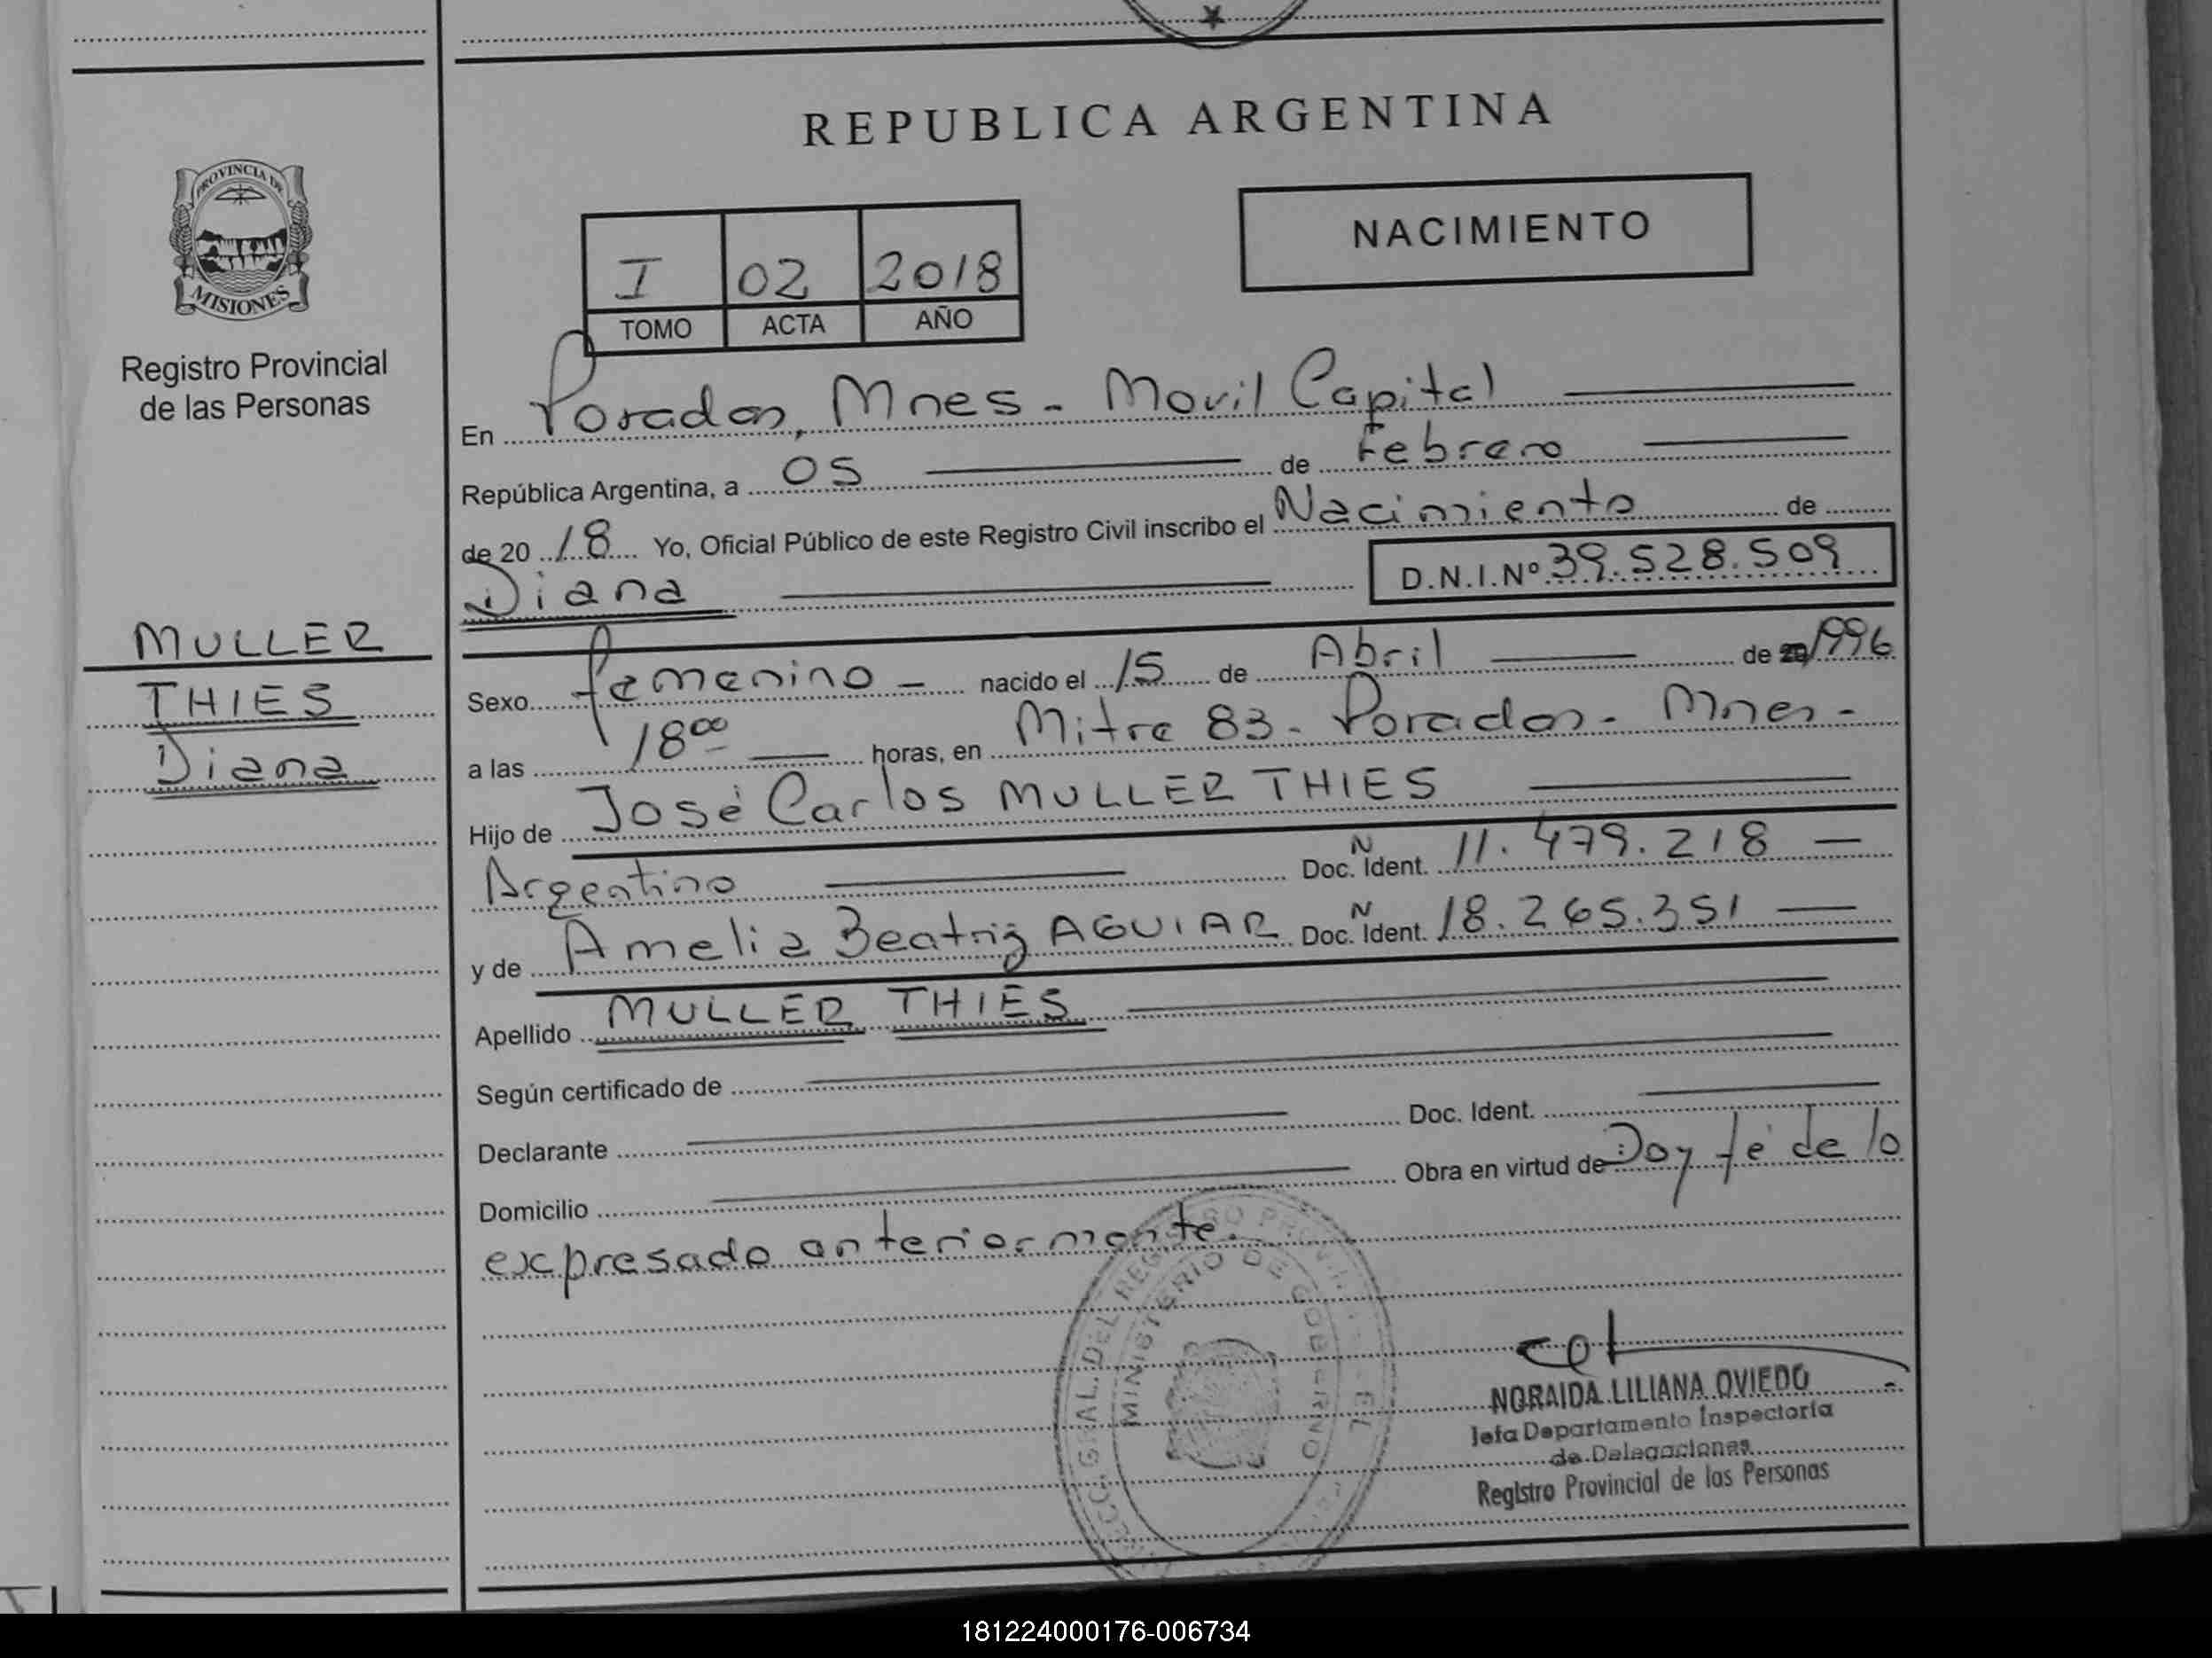 REPUBLICA ARGENTINA
PROVINCIA DE
MISIONES
Registro Provincial
de las Personas
MULLER
THIES
Diana
I 02 2018
TOMO ACTA AÑO
NACIMIENTO
En Posadas, Mnes - Movil Capital
República Argentina, a 05 de Febrero
de 2018 Yo, Oficial Público de este Registro Civil inscribo el Nacimiento de
Diana D.N.I.Nº 39.528.509
Sexo femenino - nacido el 15 de Abril de 1996
a las 18⁰⁰ horas, en Mitre 83 - Posadas - Mnes -
Hijo de José Carlos MULLER THIES
Argentino Doc. Ñ Ident. 11.479.218
y de Amelia Beatriz AGUIAR Doc. Ñ Ident. 18.265.351
Apellido MULLER THIES
Según certificado de
Declarante Doc. Ident.
Domicilio Obra en virtud de Doy fé de lo
expresado anteriormente.
MINISTERIO DE GOBIERNO
NORAIDA LILIANA OVIEDO
Jefa Departamento Inspectoría
de Delegaciones
Registro Provincial de las Personas
181224000176-006734